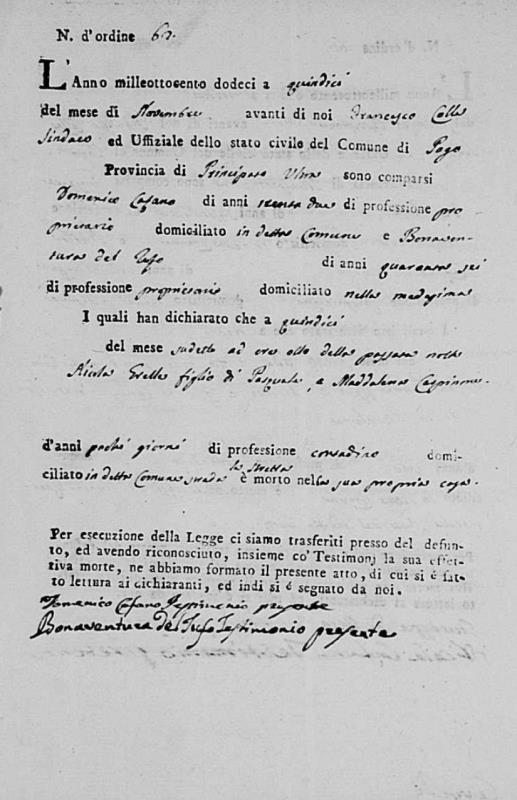 N. d'ordine 67.
L'Anno milleottocento dodeci a quindici
del mese di Novembre avanti di noi Francesco Colle
Sindaco ed Uffiziale dello stato civile del Comune di Pago
Provincia di Principato Ultra sono comparsi
Domenico Cafano di anni trenta due di professione pro
prietario domiciliato in detta Comune e Bonaven-
tura del Tufo di anni quaranta sei
di professione proprietario domiciliato nella medesima
I quali han dichiarato che a quindici
del mese sudetto ad ore otto della passata notte
Nicola figlio di Pasquale, e Maddalena
d'anni pochi giorni di professione contadino domi-
ciliato in detta Comune strada la Stretta è morto nella sua propria casa.
Per esecuzione della Legge ci siamo trasferiti presso del defun-
to, ed avendo riconosciuto, insieme co' Testimonj la sua effet-
tiva morte, ne abbiamo formato il presente atto, di cui si é fat-
to lettura ai dichiaranti, ed indi si é segnato da noi.
Domenico Cafano Testimonio presente
Bonaventura del Tufo Testimonio presente